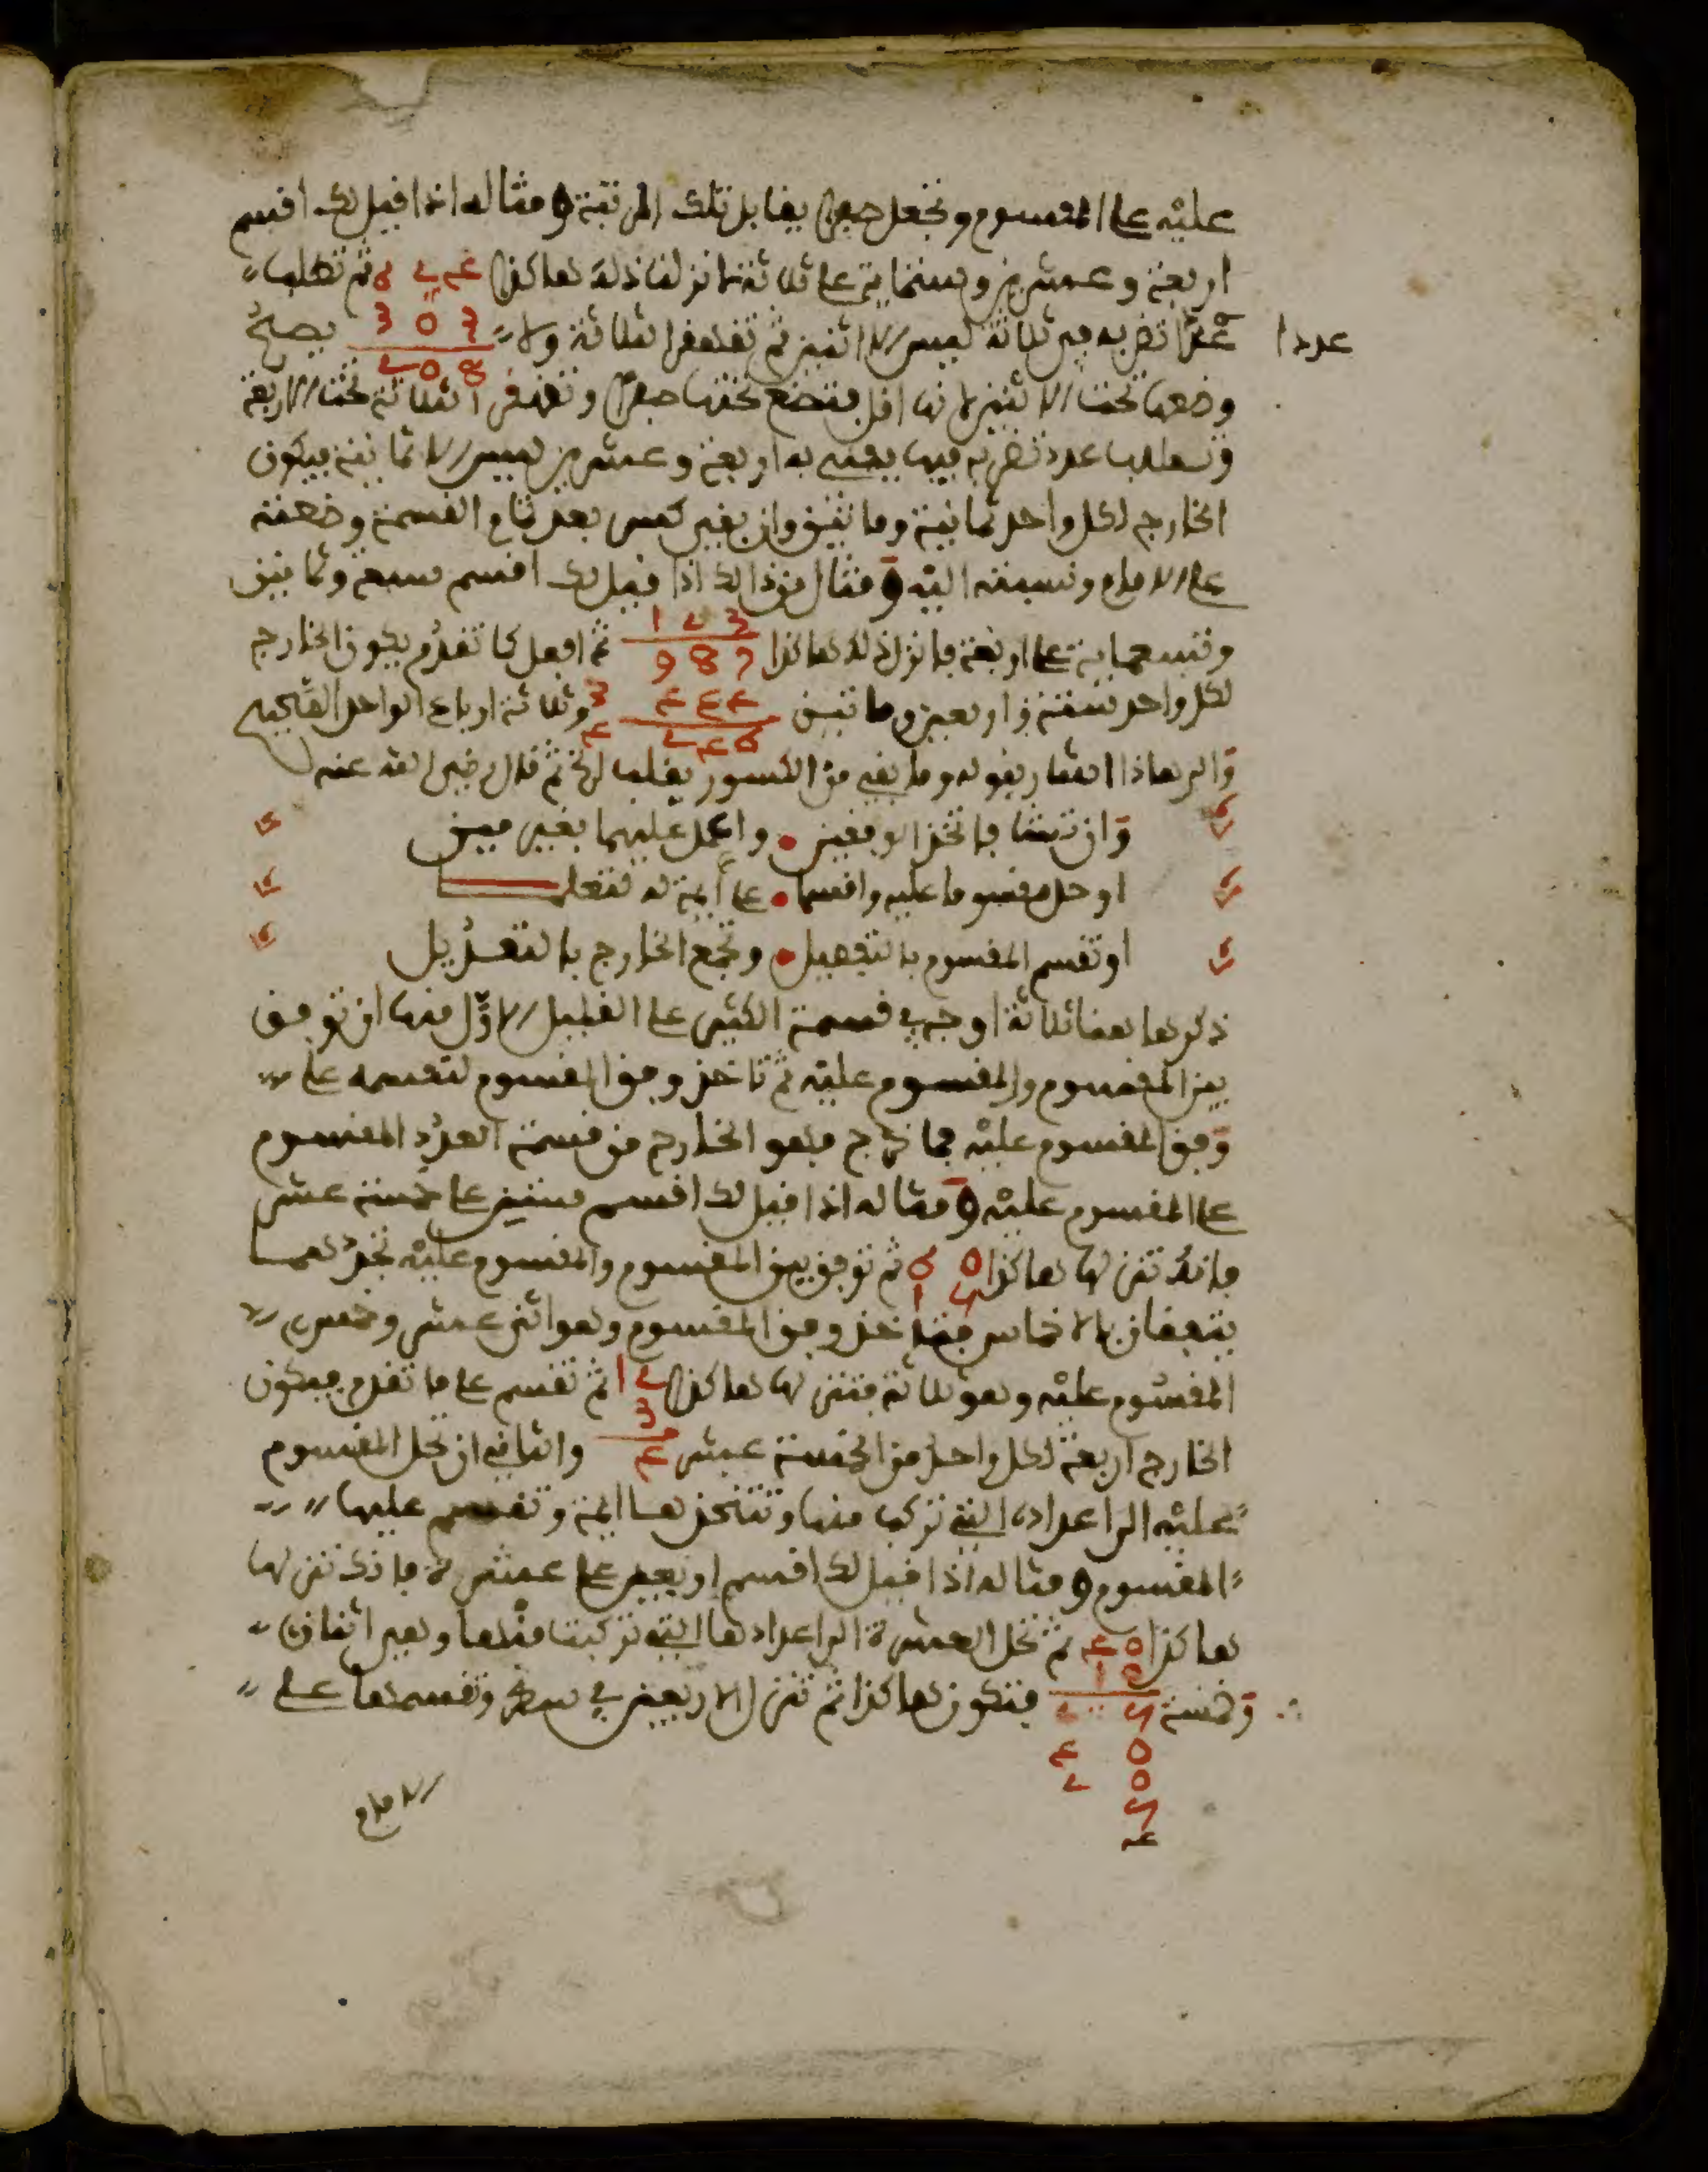 عليه على المقسوم وتجعل صفرا يقابل تلك المرتبة ومثاله اذا قيل لك اقسم
اربعة وعشرين وستماية على ثلاثة فانزل ذلك هاكذا ثم تطلب
عددا تضربه في ثلاثة ليس الا اثنين ثم تقهقر الثلاثة ولا يصح
عددا
3 0 3
8 0 2
وضعها تحت الاثنين لانها اقل فتضع تحتها صفرا وتقهقر الثلاثة تحت الاربعة
وتطلب عدد تضربه فيها يفنى به اربعة وعشرين ليس الا ثمانية فيكون
الخارج لكل واحد ثمانية ومائتين وان بقي كسر بعد تمام القسمة وضعته
على الامام ونسبته اليه ومثال من ذالك اذا قيل لك اقسم سبعة وثمانين
وتسعماية على اربعة فانزل ذلك هاكذا
1 2 3
9 8 7
ثم افعل كما تقدم يكون الخارج
لكل واحد ستة واربعين ومائتين
4 4 4
2 4 6
3
4
وثلاثة ارباع الواحد الصحيح
والى هاذا اشار بقوله وما بقي من الكسور يغلب الخ ثم قال رضي الله عنه
وان تشا فاتخذ الوفقين واعمل عليهما بغير مين
او حل مقسوما عليه واقسما على ايمة له لتعلما
او تقسم المقسوم بالتفصيل وتجمع الخارج بالتعديل
ذكر هاهنا ثلاثة اوجه في قسمة الكثير على القليل الاول منها ان توفق
بين المقسوم والمقسوم عليه ثم تاخذ وفق المقسوم لتقسمه على
وفق المقسوم عليه فما خرج فهو الخارج من قسمة العدد المقسوم
على المقسوم عليه ومثاله اذا قيل لك اقسم ستين على خمسة عشر
فانك تنزلها هاكذا
6 0
1 5
ثم توفق بين المقسوم والمقسوم عليه تجدهما
يتفقان بالاخماس فتاخذ وفق المقسوم وهو اثنى عشر وخمس
المقسوم عليه وهو ثلاثة فتنزلها هاكذا
1 2
3
4
ثم تقسم على ما تقدم فيكون
الخارج اربعة لكل واحد من الخمسة عشر والثاني ان تحل المقسوم
عليه الى اعداده التي تركب منها وتتخذها ايمة وتقسم عليها
المقسوم ومثاله اذا قيل لك اقسم اربعين على عشرة فانك تنزلها
هاكذا
4 0
1 0
ثم تحل العشرة الى اعدادها التي تركبت منها وهي اثنان
وخمسة فتكون هاكذا ثم تنزل الاربعين في سطر وتقسمها على
2 5
4 0
2 0
5
4
الامام